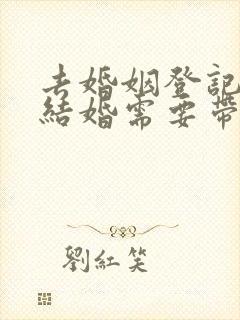 去婚姻登記
結婚需要帶
劉紅笑